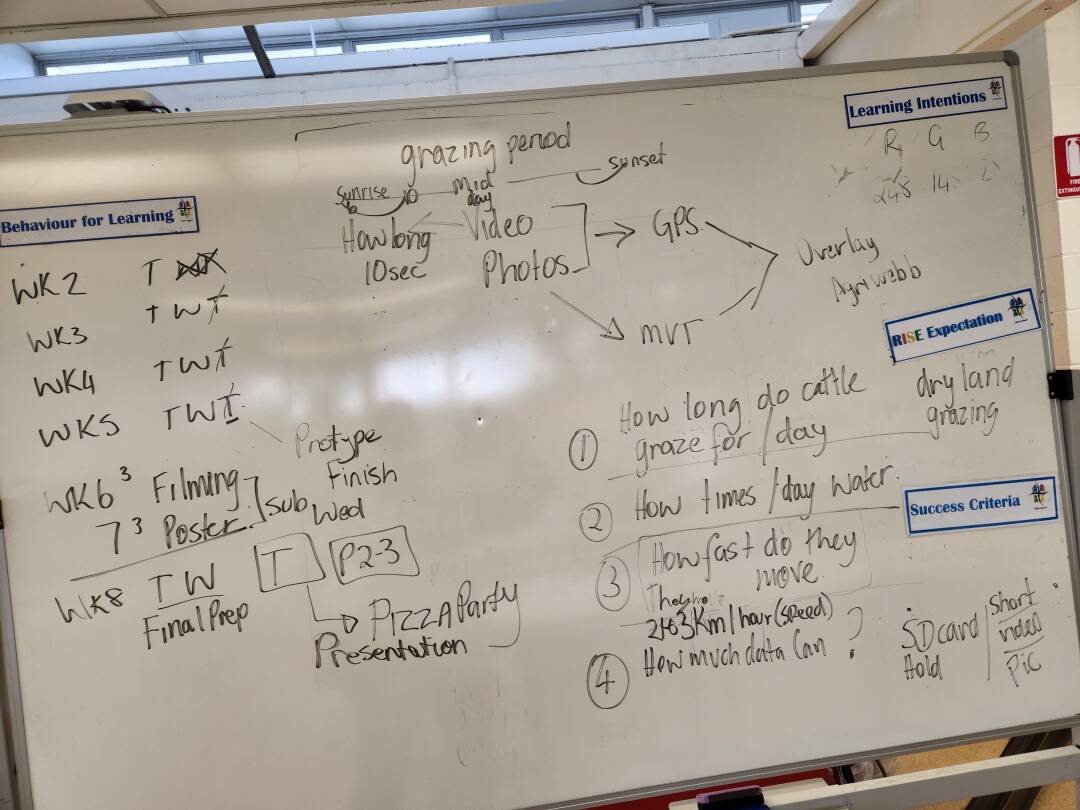 Learning Intentions
R G B
248 14
grazing period
sunrise
10
Mid
day
sunset
6
How long
10sec
Video
Photos
GPS
MVT
Overlay
Agriwebb
Behaviour for Learning
WK2 T
WK3 T W T
WK4 T W T
WK5 T W T
Protype
Finish
Wed
WK6 3 Filming
7 3 Poster
Sub
WK8 T W
Final Prep
T
P2-3
PIZZA Party
Presentation
RISE Expectation
dryland
grazing
1 How long do cattle
graze for /day
2 How times /day water.
3 How fast do they
move.
They
2to3Km/hour(speed)
4 How much data Can ?
SDcard
Hold
Short
video
Pic
Success Criteria
FIRE
EXTINGUISHER